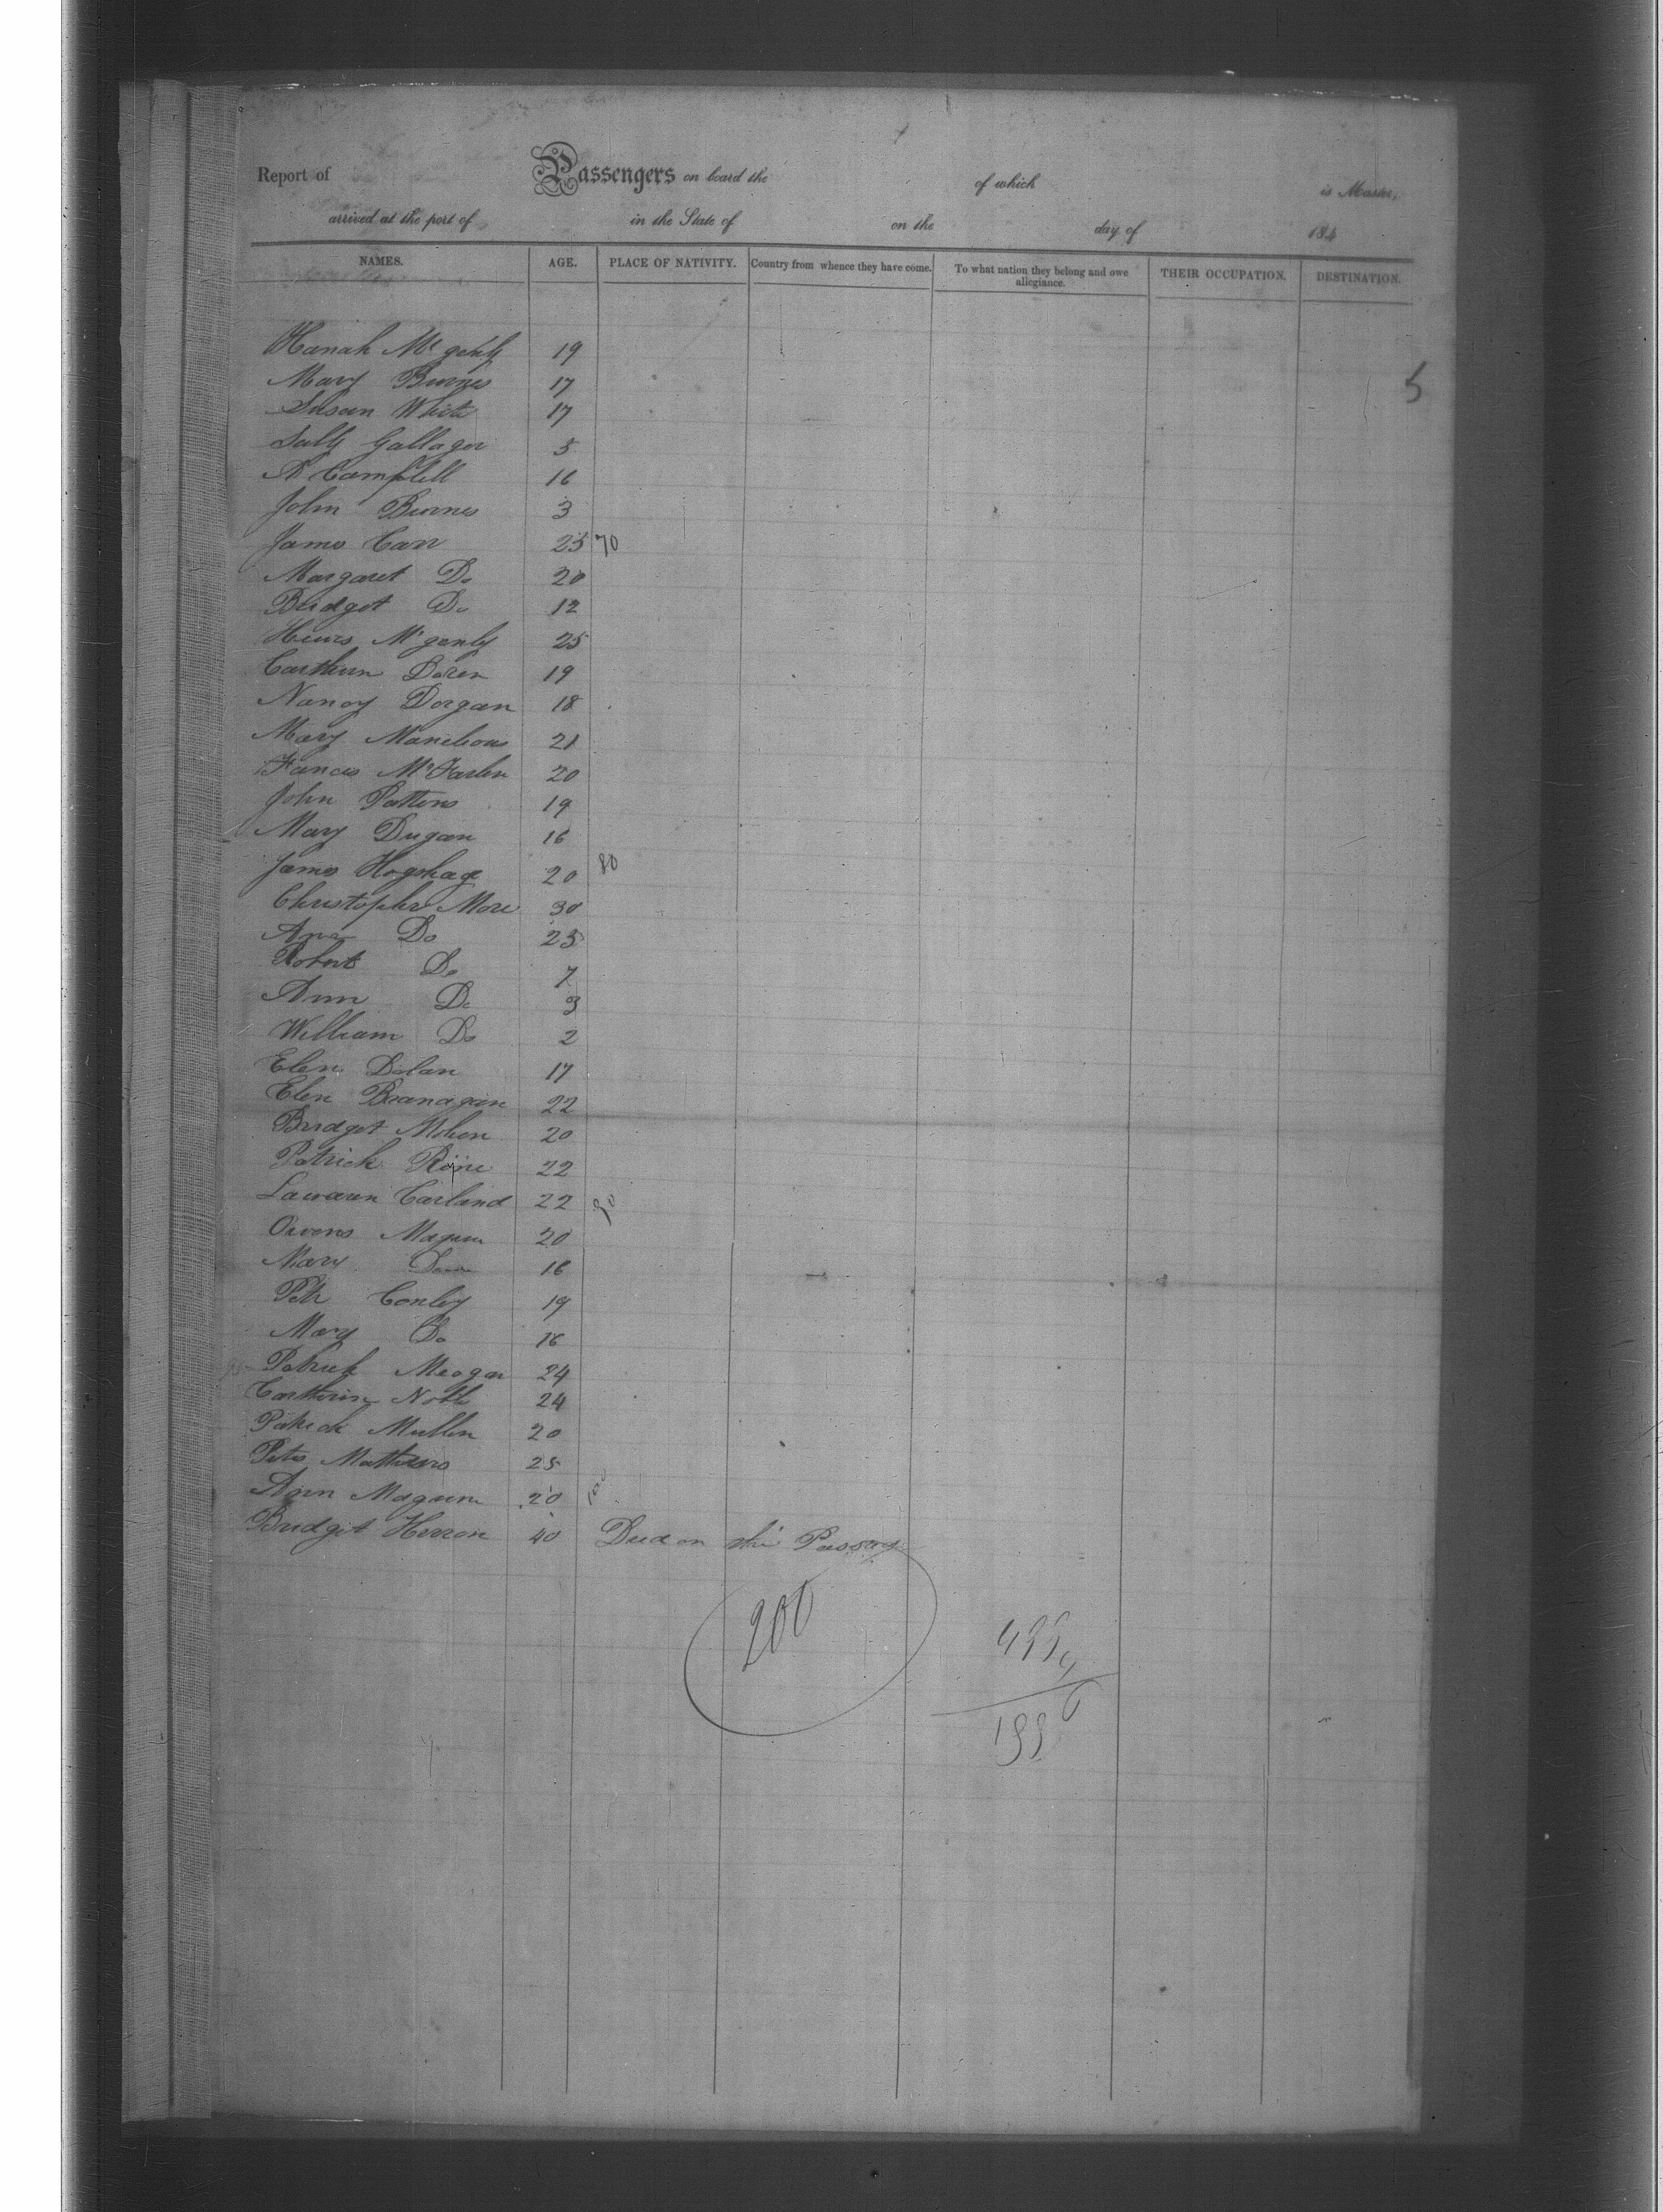 Report of Passengers on board the of which is Master,
arrived at the port of in the State of on the day of 184
NAMES. AGE. PLACE OF NATIVITY. Country from whence they have come. To what nation they belong and owe allegiance. THEIR OCCUPATION. DESTINATION.
Hanah Mc 19
Mary Burnes 17
5
Susan White 17
Sally Gallager 5
A Campbell 16
John Burnes 3
James Carr 25 70
Margaret Do 20
Bridget Do 12
25
Doren 19
Nancy Dorgan 18
Mary 21
Francis McFarlen 20
John Pattens 19
Mary Dugan 16
James 20 80
Christopher More 30
Ann Do 25
Robert Do 7
Ann Do 3
William Do 2
Elen Dolan 17
Elen Branagan 22
Bridget 20
Patrick 22
Carland 22 90
Owens Maguin 20
Mary Do 16
Petr Conley 19
Mary Do 16
Patrick Meagan 24
Cartherin Noble 24
Patrick Mullen 20
Peter Mathews 25
Ann Maguin 20 100
Bridget Herron 40 Died on the Passage
200